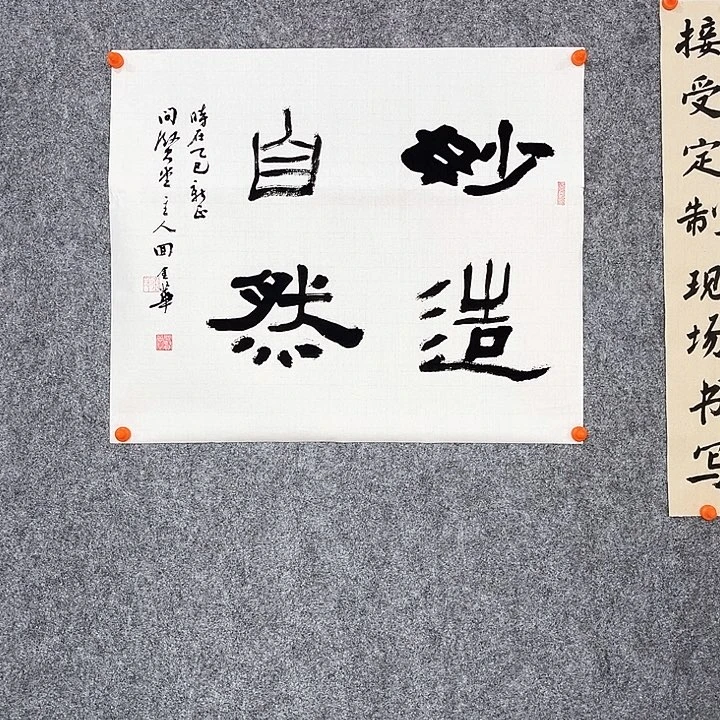 接受定制现场书写
妙造
自然
時在乙巳新正
问賢堂主人